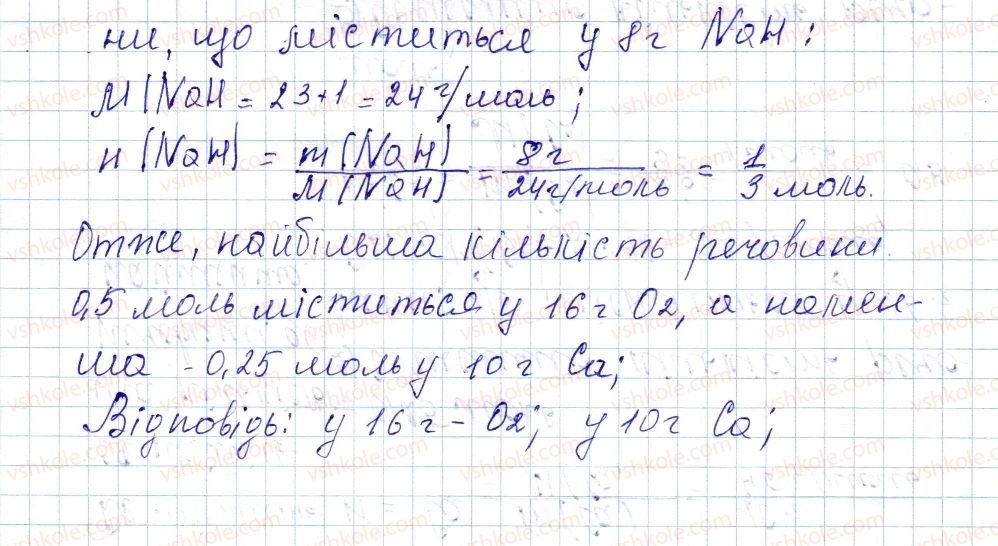 ни, що міститься у 8г NaH:
M(NaH = 23+1 = 24 г/моль;
н (NaH) = m(NaH) / M(NaH) = 8г / 24г/моль = 1/3 моль.
Отже, найбільша кількість речовини.
0,5 моль міститься у 16 г O2, а намен-
ша - 0,25 моль у 10 г Ca;
Відповідь: у 16 г - O2; у 10 г Ca;